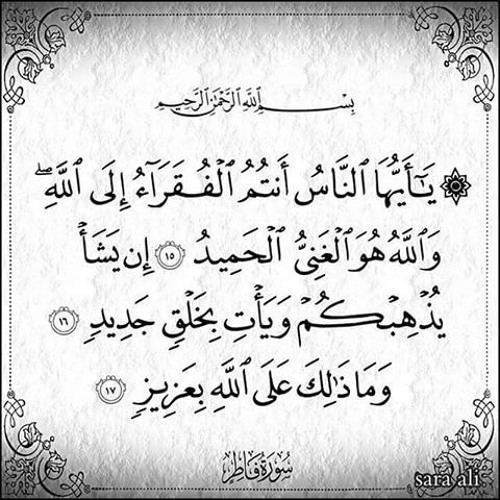 بِسْمِ ٱللَّهِ ٱلرَّحْمَٰنِ ٱلرَّحِيمِ
۞ يَٰٓأَيُّهَا ٱلنَّاسُ أَنتُمُ ٱلْفُقَرَآءُ إِلَى ٱللَّهِ ۖ
وَٱللَّهُ هُوَ ٱلْغَنِىُّ ٱلْحَمِيدُ ١٥ إِن يَشَأْ
يُذْهِبْكُمْ وَيَأْتِ بِخَلْقٍ جَدِيدٍ ١٦
وَمَا ذَٰلِكَ عَلَى ٱللَّهِ بِعَزِيزٍ ١٧
سُورَةُ فَاطِرٍ
sara ali